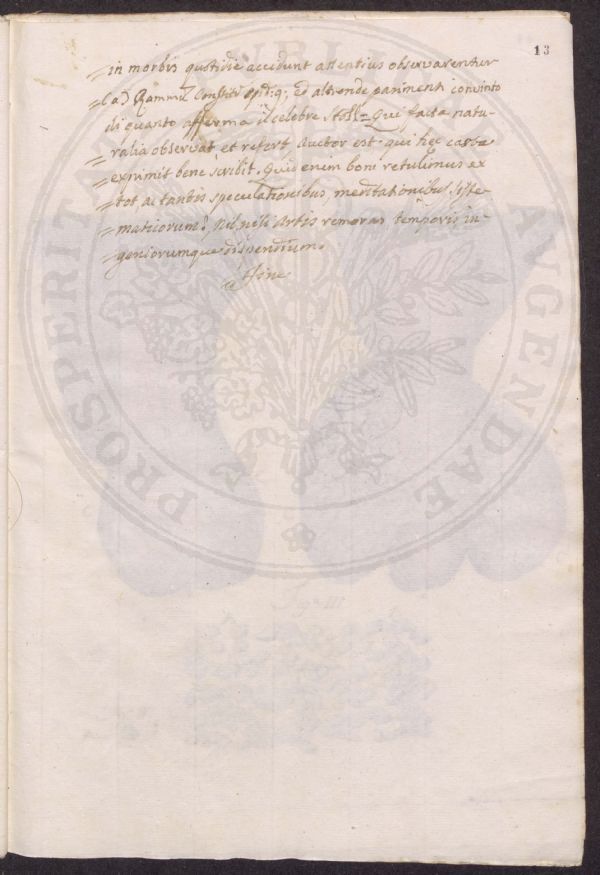 13
in morbis quotidie accidunt attentius observarentur
(a) Ramaz: Constit: ed altronde parimenti convinto
di quanto afferma il celebre Stoll = Qui facta natu-
ralia observat et refert, Auctor est: qui hęc caste
exprimit bene scribit. Quid enim boni retulimus ex
tot ac tantis speculationibus, meditationibus Syste-
maticorum? nil nisi Artis remoram temporis in-
geniorumque dispendium.
Fine
PROSPERITATI AUGENDAE
Fig.a III